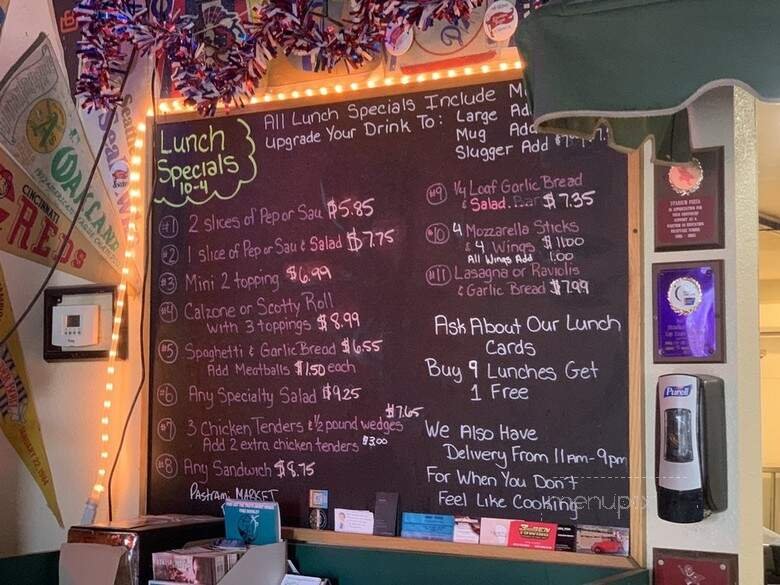 Lunch
Specials
10-4
All Lunch Specials Include
Upgrade Your Drink To: Large
Mug
Slugger Add
#1 2 slices of Pep or Sau $5.85
#2 1 slice of Pep or Sau & Salad $7.75
#3 Mini 2 topping $6.99
#4 Calzone or Scotty Roll
with 3 toppings $8.99
#5 Spaghetti & Garlic Bread $6.55
Add Meatballs $1.50 each
#6 Any Specialty Salad $9.25
$7.65
#7 3 Chicken Tenders & 1/2 pound wedges
Add 2 extra chicken tenders $3.00
#8 Any Sandwich $8.75
Pastrami MARKET
#9 1/4 Loaf Garlic Bread
& Salad Bar $7.35
#10 4 Mozzarella Sticks
& 4 Wings $11.00
All Wings Add 1.00
#11 Lasagna or Raviolis
& Garlic Bread $7.99
Ask About Our Lunch
Cards
Buy 9 Lunches Get
1 Free
We Also Have
Delivery From 11am-9pm
For When You Don't
Feel Like Cooking
CINCINNATI
Reds
A's
Oakland
Purell
menupix